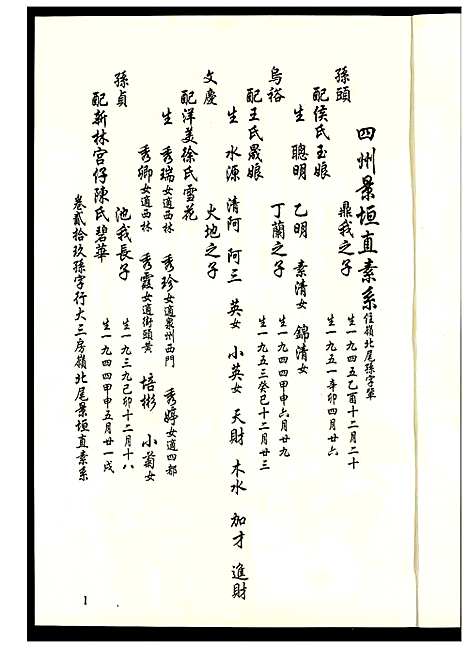 四州景垣直素系 住嶺北尾孫字輩
孫頭 鼎我之子 生一九四五乙酉十二月二十
配侯氏玉娘 生一九五一辛卯四月廿六
生 聰明 乙明 素清女 錦清女
烏裕 丁蘭之子 生一九四四甲申六月廿九
配王氏晟娘 生一九五三癸巳十二月廿三
生 水源 清阿 阿三 英女 小英女 天財 木水 加才 進財
文慶 火地之子
配洋美徐氏雪花
生 秀瑞女適西林 秀珍女適泉州西門 秀婷女適四都
秀卿女適西林 秀霞女適街頭黃 培彬 小菊女
孫貞 池我長子 生一九三九己卯十二月十八
配新林宮仔陳氏碧華 生一九四四甲申五月廿一戌
卷貳拾玖孫字行大三房嶺北尾景垣直素系
1